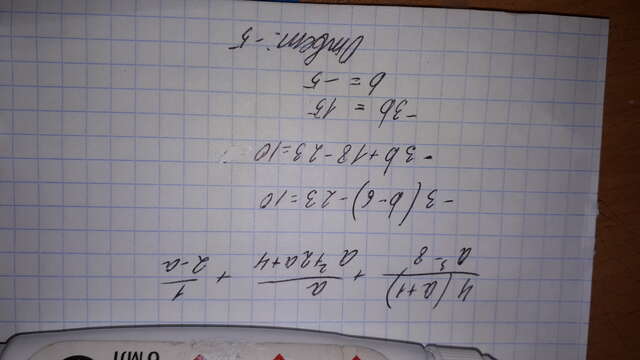 6 мл
4(a+1)/(a³-8) + a/(a²+2a+4) + 1/(2-a)
-3(b-6)-23=10
-3b+18-23=10
-3b = 15
b = -5
Ответ: -5